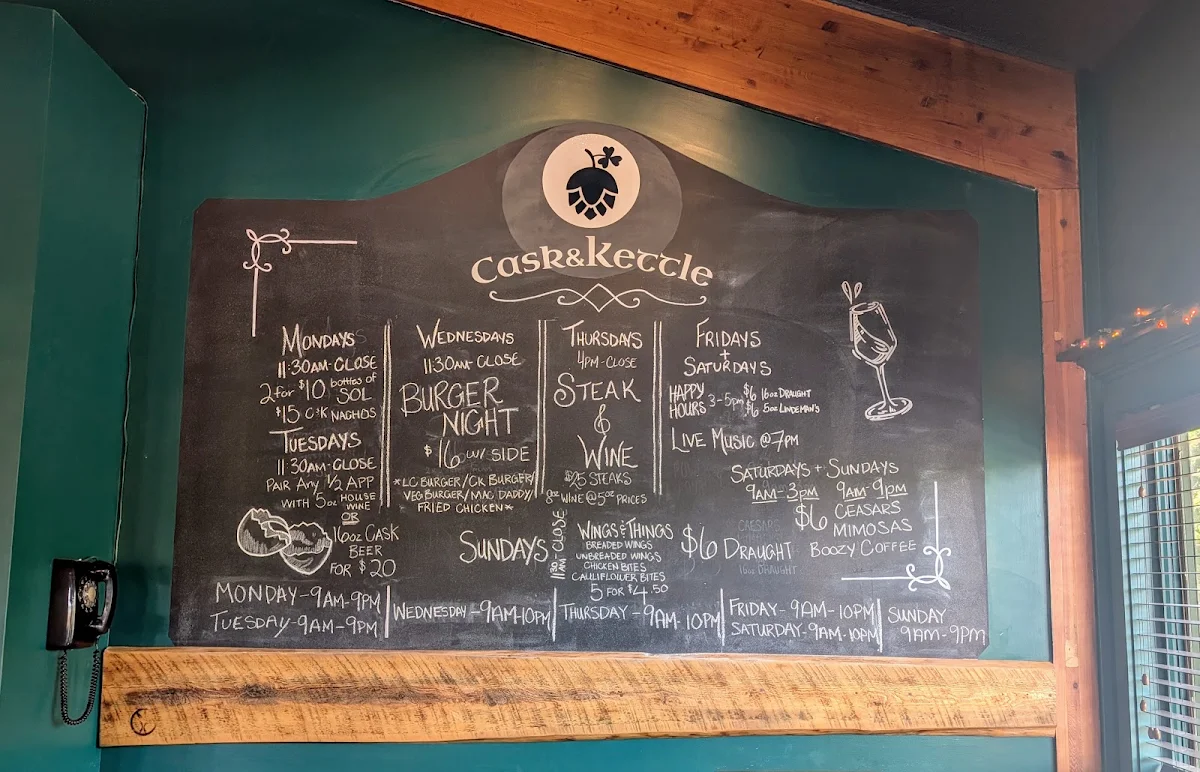 Cask & Kettle
MONDAYS
11:30AM-CLOSE
2 for $10 bottles of SOL
$15 C&K NACHOS
TUESDAYS
11:30AM-CLOSE
PAIR ANY 1/2 APP
WITH 5oz HOUSE WINE
OR
16oz CASK
BEER
FOR $20
WEDNESDAYS
11:30AM-CLOSE
BURGER
NIGHT
$16 W/ SIDE
*LC BURGER/CK BURGER/
VEG BURGER/MAC DADDY/
FRIED CHICKEN*
THURSDAYS
4PM-CLOSE
STEAK
&
WINE
$25 STEAKS
8oz WINE @ 5oz PRICES
FRIDAYS
+
SATURDAYS
HAPPY HOURS 3-5pm $6 16oz DRAUGHT
$6 5oz LINDEMAN'S
LIVE MUSIC @7PM
SATURDAYS + SUNDAYS
9AM-3PM 9AM-9PM
$6 CEASARS
MIMOSAS
BOOZY COFFEE
SUNDAYS
11:30AM-CLOSE
WINGS & THINGS
BREADED WINGS
UNBREADED WINGS
CHICKEN BITES
CAULIFLOWER BITES
5 FOR $4.50
$6 DRAUGHT
CAESARS
16oz DRAUGHT
MONDAY-9AM-9PM
TUESDAY-9AM-9PM
WEDNESDAY-9AM-10PM
THURSDAY-9AM-10PM
FRIDAY-9AM-10PM
SATURDAY-9AM-10PM
SUNDAY
9AM-9PM